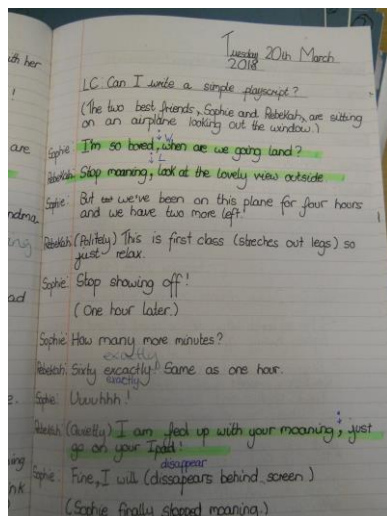 Tuesday 20th March
2018
LC: Can I write a simple playscript?
(The two best friends, Sophie and Rebekah, are sitting
on an airplane looking out the window.)
Sophie: I'm so bored, when are we going land?
Rebekah: Stop moaning, look at the lovely view outside
Sophie: But we've been on this plane for four hours
and we have two more left!
Rebekah: (Politely) This is first class (streches out legs) so
just relax.
Sophie: Stop showing off!
(One hour later.)
Sophie: How many more minutes?
exactly
Rebekah: Sixty excactly! Same as one hour.
exactly
Sophie: Uuuuhhh!
Rebekah: (Quietly) I am fed up with your moaning, just
go on your Ipad!
disappear
Sophie: Fine, I will (dissapears behind screen.)
(Sophie finally stopped moaning.)
uth her
are
ndma
ad
ing
nk